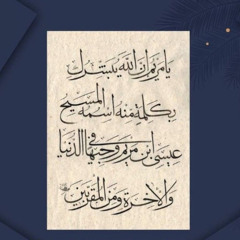 يا مريم ان الله يبشرك
بكلمة منه اسمه المسيح
عيسى ابن مريم وجيها في الدنيا
والآخرة ومن المقربين